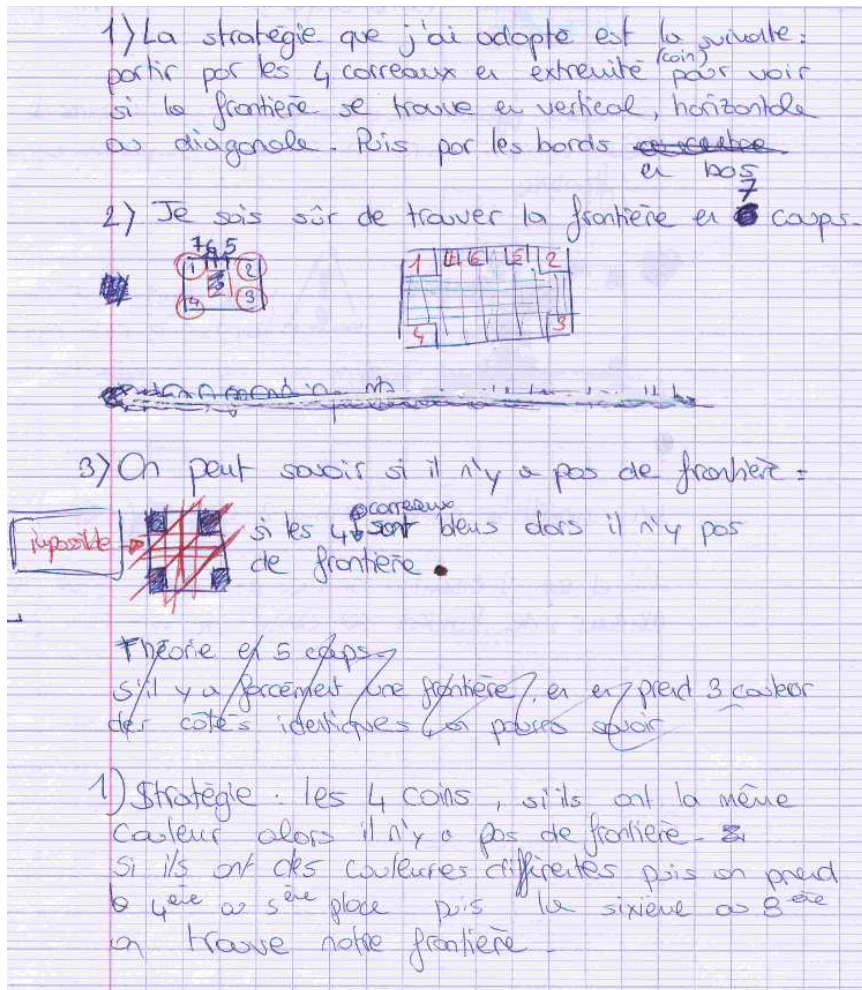 1) La stratégie que j'ai adopté est la suivate :
partir par les 4 correaux en extremité (coin) pour voir
si la frontière se trouve en vertical, horizontale
ou diagonale. Puis par les bords
en bas
2) Je suis sûr de trouver la frontière en 7 coups.
7 6 5
1 2
4 3
1 4 6 5 2
4 3
3) On peut savoir si il n'y a pas de frontière :
si les 4 correaux sont bleus alors il n'y pas
impossible
de frontière.
Théorie en 5 coups
s'il y a forcément une frontière, en en prend 3 couleur
des côtés identiques, on pourra savoir
1) Stratégie : les 4 coins, si ils ont la même
couleur alors il n'y a pas de frontière.
si ils ont des couleures différentes puis on prend
la 4ère ou 5ère place puis la sixième ou 8ère
on trouve notre frontière.